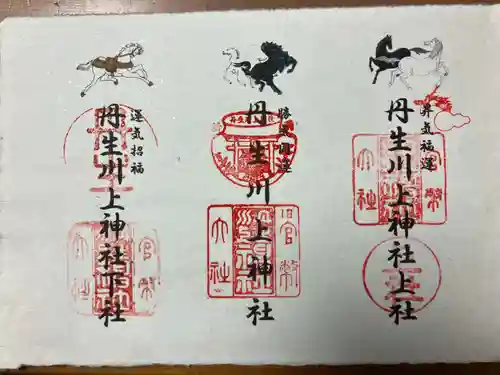 昇気福運
丹生川上神社上社
官幣
大社
丹生川上神社
官幣
大社
運気招福
丹生川上神社下社
官幣
大社